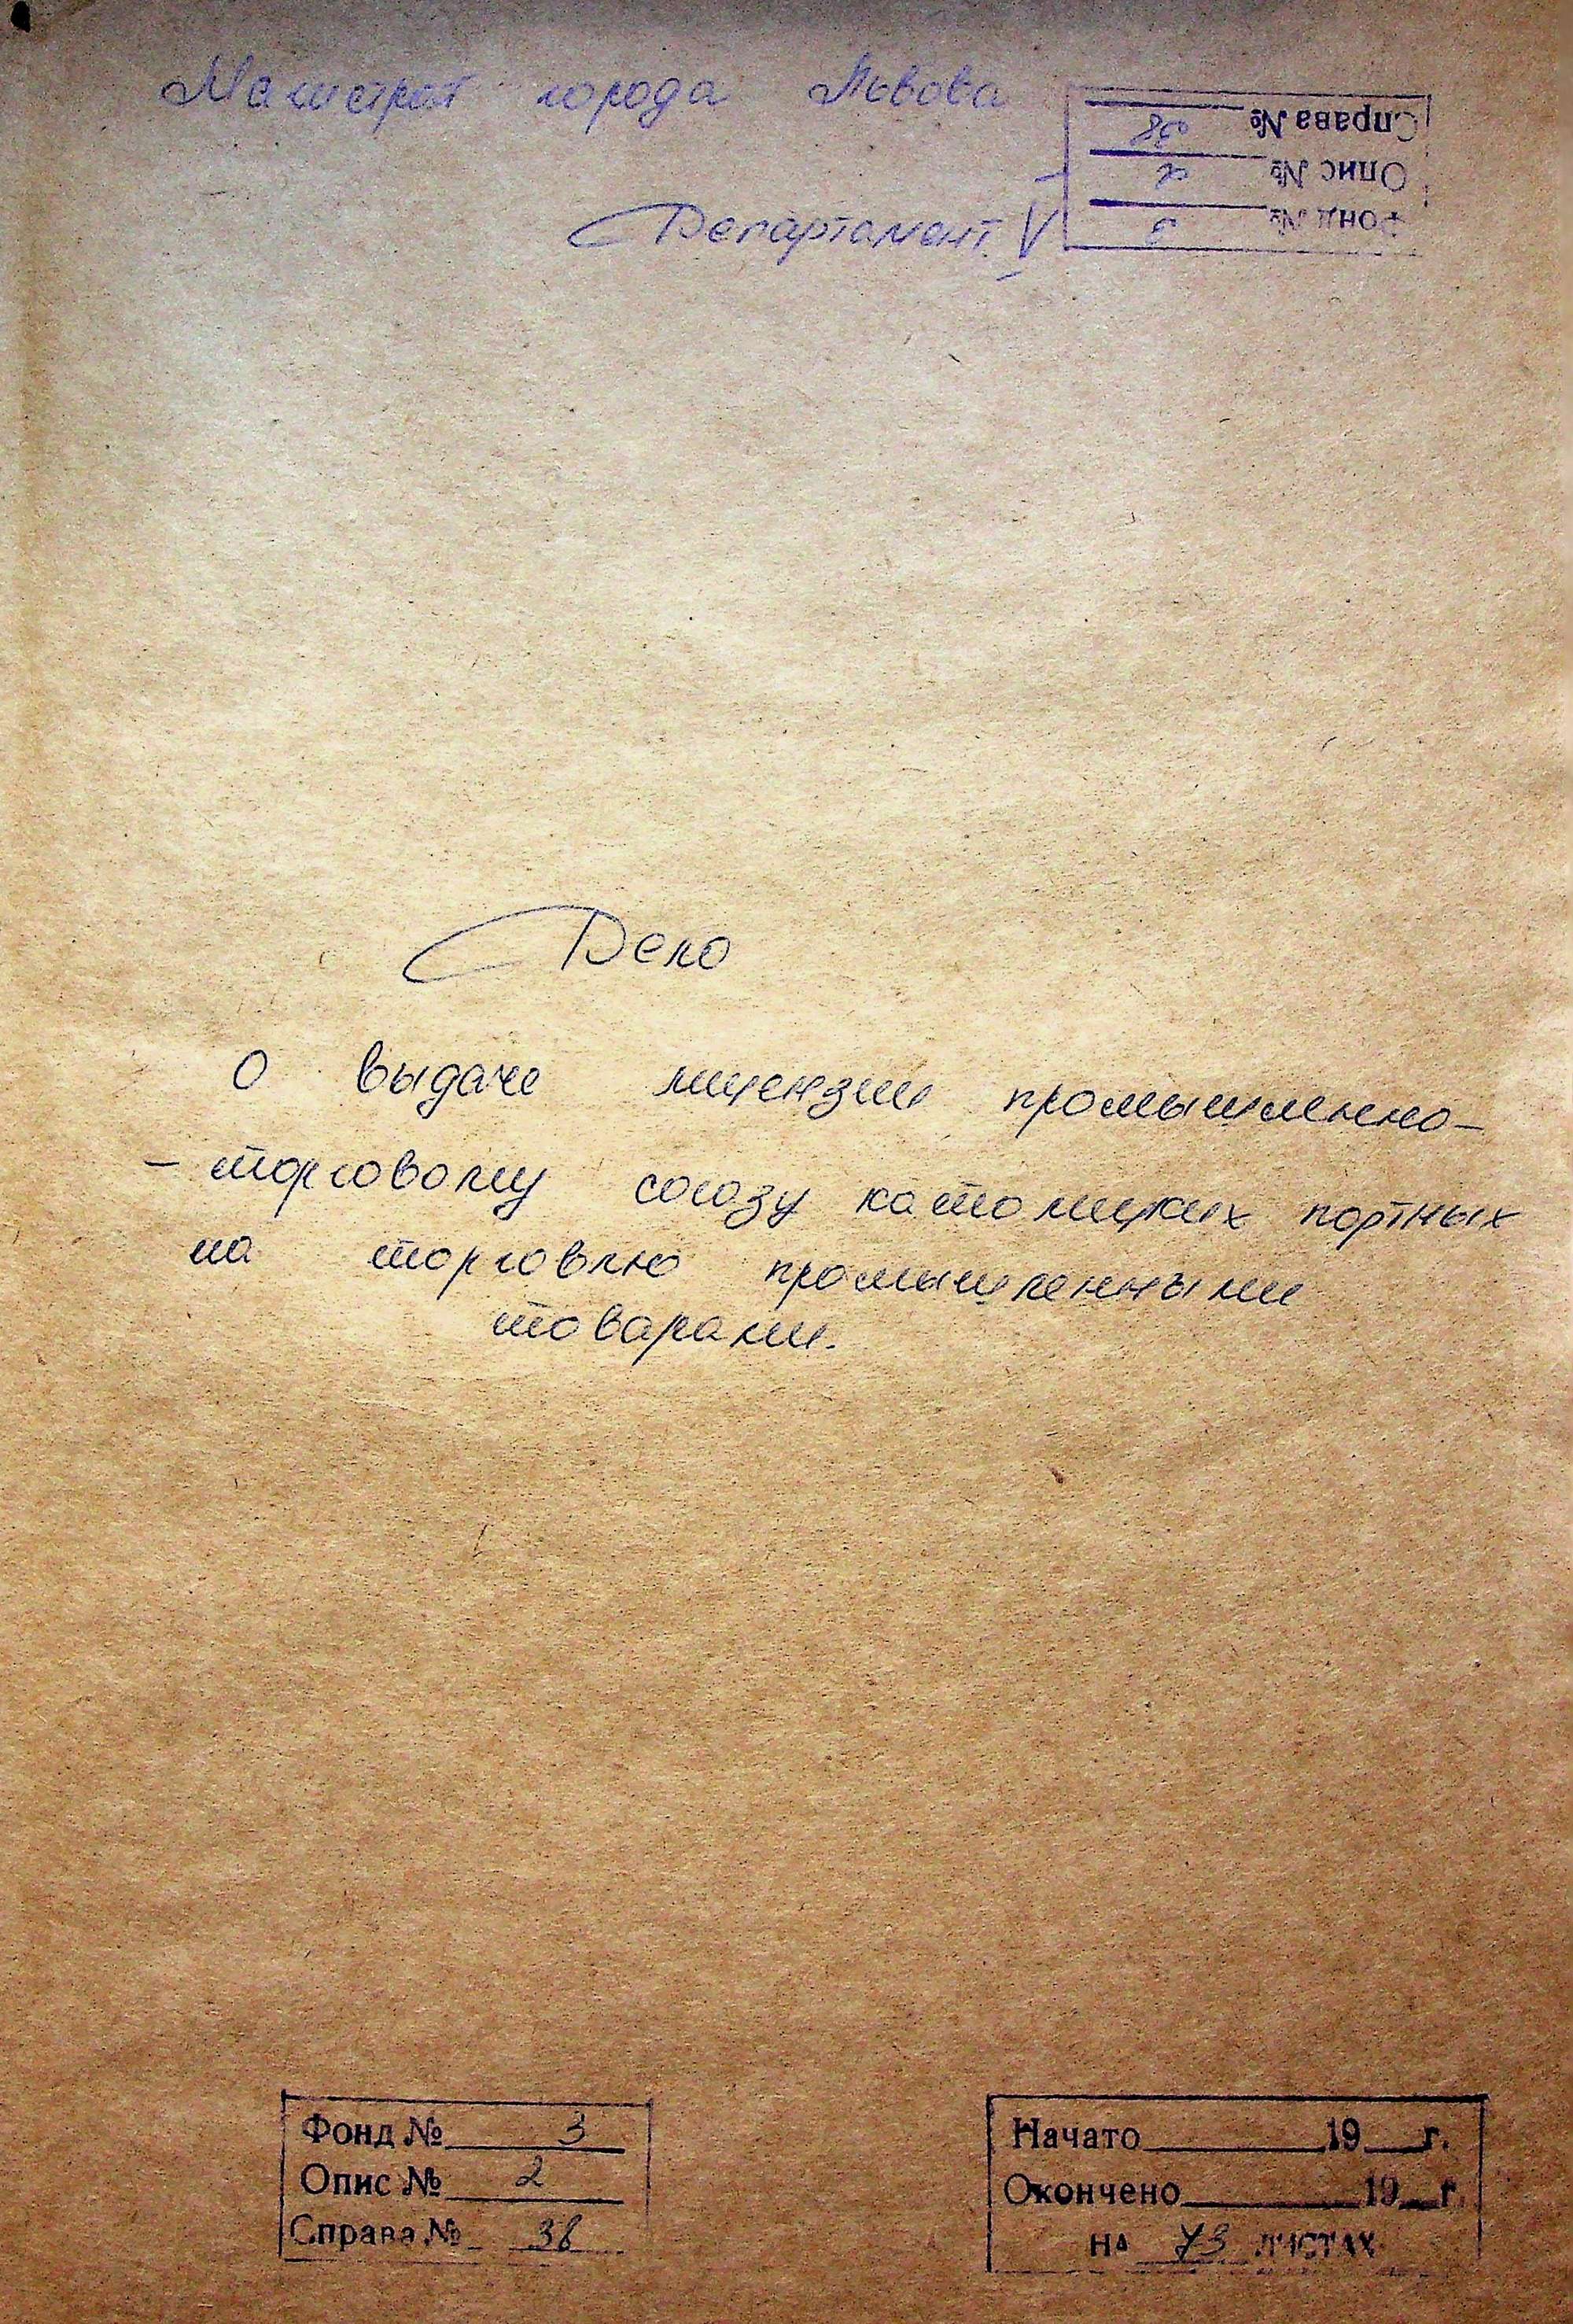 Магистрат города Львова
Справа № 38
Опис № 2
Фонд № 3
Департамент V
Дело
О выдаче лицензии промышленно-
- торговому союзу католицких портных
на торговлю промышленными
товарами.
Фонд № 3
Опис № 2
Справа № 38
Начато 19 г.
Окончено 19 г.
на 73 листах